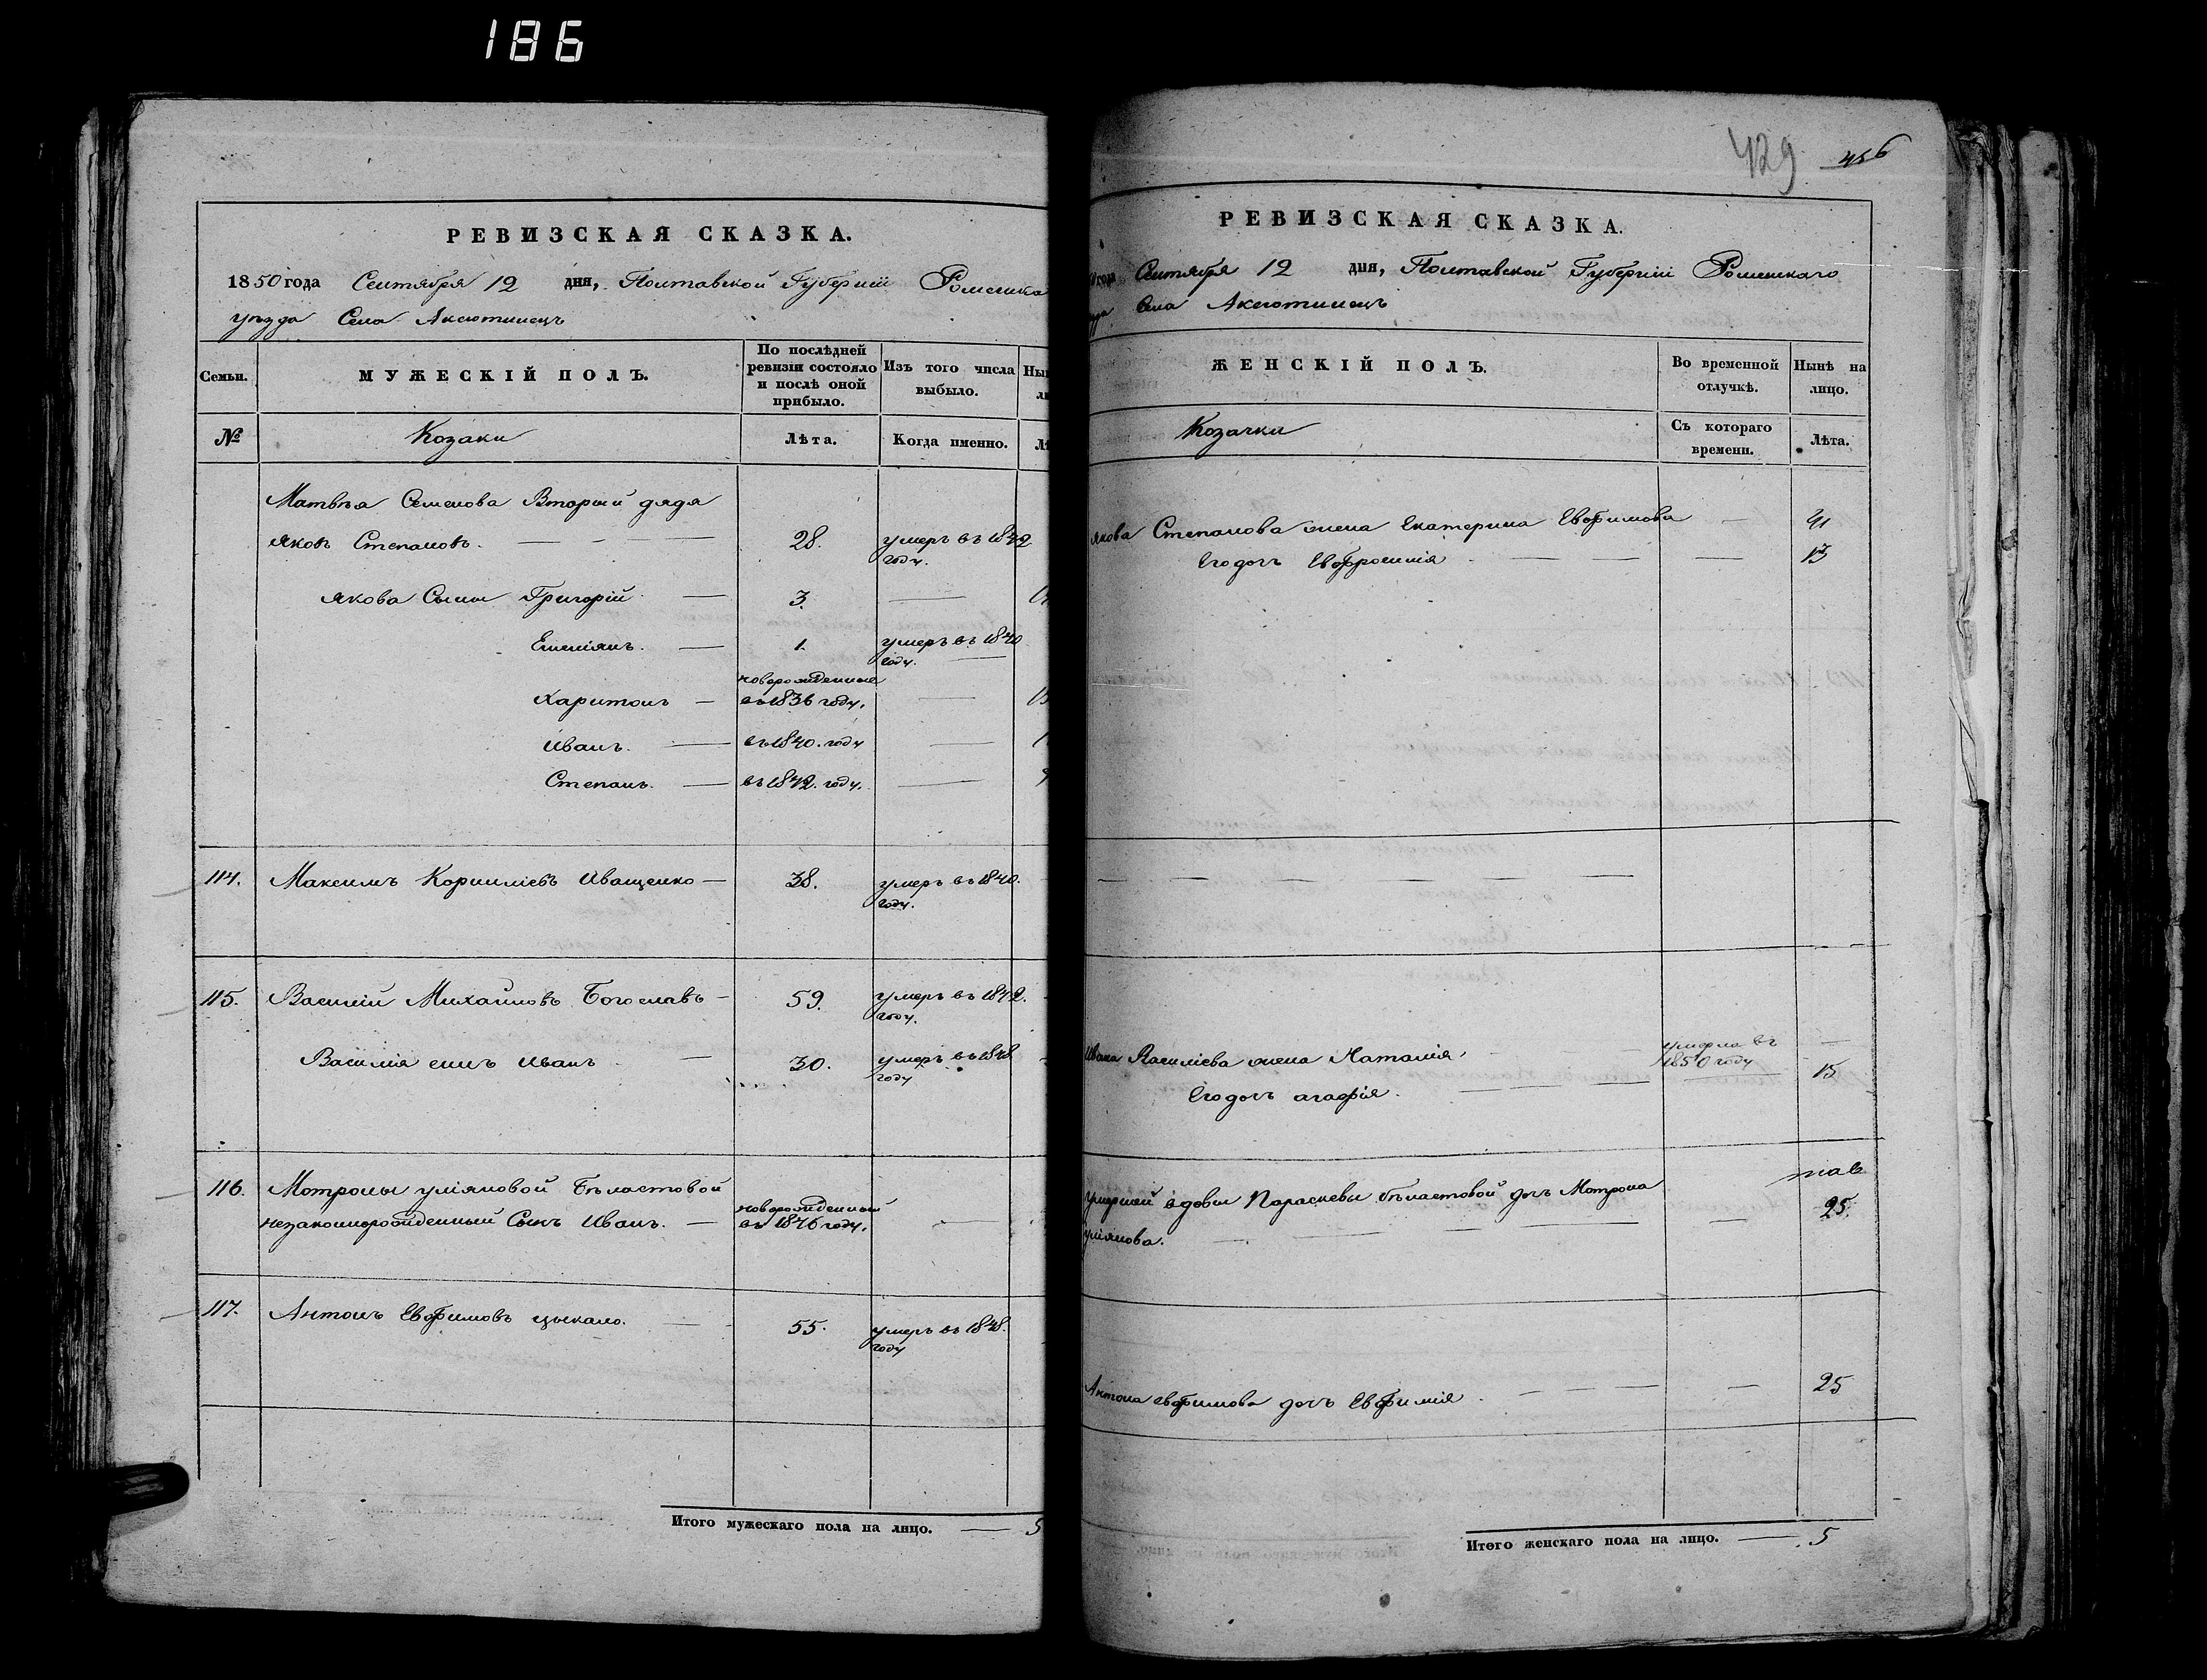 186
РЕВИЗСКАЯ СКАЗКА.
1850 года Сентября 12 дня, Полтавской Губерніи Роменска
уѣзда Села Аксютинецъ
Семьи.
МУЖЕСКІЙ ПОЛЪ.
По послѣдней
ревизіи состояло
и послѣ оной
прибыло.
Изъ того числа
выбыло.
№
Козаки
Лѣта.
Когда именно.
Матвѣя Семенова Вторый дядя
Яковъ Степановъ. 28. умеръ въ 1842
году.
Якова Сыны Григорій 3.
Емеліянъ. 1. умеръ въ 1840
году.
новорожденные
Харитонъ въ 1836 году.
Иванъ. въ 1840. году
Степанъ. въ 1842. году.
114. Максимъ Корниліевъ Иващенко 38. умеръ въ 1840.
году.
115. Василій Михайловъ Богославъ 59. умеръ въ 1842.
году.
Василія сынъ Иванъ 30. умеръ въ 1848
году
116. Мотроны уліяновой Бѣластовой новорожденный
незаконнорожденный Сынъ Иванъ. въ 1846 году.
117. Антонъ Евфимовъ цыкало. 55. умеръ въ 1848.
году
Итого мужескаго пола на лицо. 5
429 456
РЕВИЗСКАЯ СКАЗКА.
года Сентября 12 дня, Полтавской Губерніи Роменскаго
Села Аксютинецъ
ЖЕНСКІЙ ПОЛЪ.
Во временной
отлучкѣ.
Нынѣ на
лицо.
Козачки
Съ котораго
времени.
Лѣта.
Якова Степанова жена Екатерина Евфимова 41
Его дочь Евфросинія 13
Ивана Василіева жена Наталія умерла въ
1850 году
Его дочь агафія. 15
умершей вдовы Параскевы бѣластовой дочь Мотрона 25.
уліянова.
Антона евфимова дочь Евфимія 25
Итого женскаго пола на лицо. 5